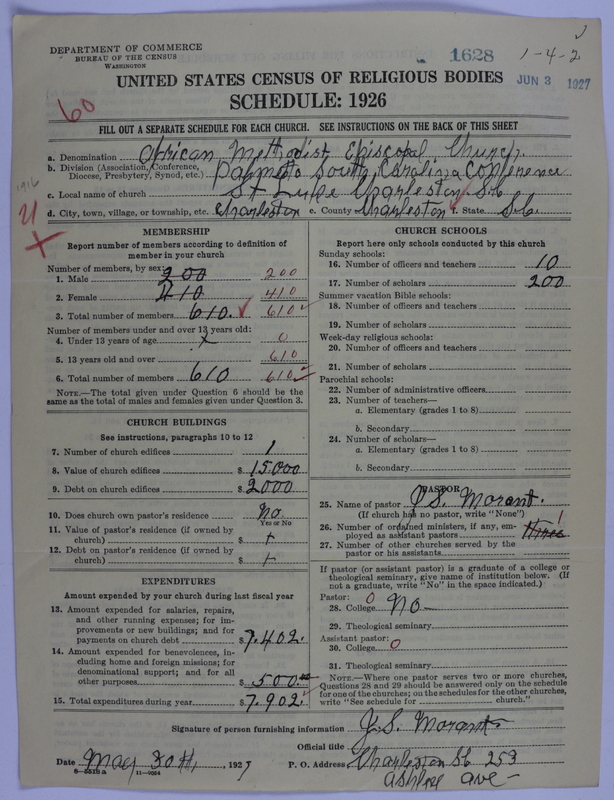 DEPARTMENT OF COMMERCE
BUREAU OF THE CENSUS
WASHINGTON
1628
1-4-2
JUN 3 1927
UNITED STATES CENSUS OF RELIGIOUS BODIES
SCHEDULE: 1926
60
FILL OUT A SEPARATE SCHEDULE FOR EACH CHURCH. SEE INSTRUCTIONS ON THE BACK OF THIS SHEET
a. Denomination African Methodist Episcopal Church
b. Division (Association, Conference, Diocese, Presbytery, Synod, etc.) Palmeto South Carolina Conference
1916
c. Local name of church St Luke Charleston S.C
d. City, town, village, or township, etc. Charleston e. County Charleston f. State S.C.
MEMBERSHIP
Report number of members according to definition of member in your church
Number of members, by sex:
1. Male 200 200
2. Female 410 410
3. Total number of members 610. 610
Number of members under and over 13 years old:
4. Under 13 years of age x 0
5. 13 years old and over 610
6. Total number of members 610 610
NOTE.—The total given under Question 6 should be the same as the total of males and females given under Question 3.
CHURCH BUILDINGS
See instructions, paragraphs 10 to 12
7. Number of church edifices 1
8. Value of church edifices $ 15.000
9. Debt on church edifices $ 2000
10. Does church own pastor's residence No.
Yes or No
11. Value of pastor's residence (if owned by church) $ +
12. Debt on pastor's residence (if owned by church) $ +
EXPENDITURES
Amount expended by your church during last fiscal year
13. Amount expended for salaries, repairs, and other running expenses; for improvements or new buildings; and for payments on church debt $ 7.402.
14. Amount expended for benevolences, including home and foreign missions; for denominational support; and for all other purposes $ 500.00
15. Total expenditures during year $ 7.902.
CHURCH SCHOOLS
Report here only schools conducted by this church
Sunday schools:
16. Number of officers and teachers 10
17. Number of scholars 200
Summer vacation Bible schools:
18. Number of officers and teachers
19. Number of scholars
Week-day religious schools:
20. Number of officers and teachers
21. Number of scholars
Parochial schools:
22. Number of administrative officers
23. Number of teachers—
a. Elementary (grades 1 to 8)
b. Secondary
24. Number of scholars—
a. Elementary (grades 1 to 8)
b. Secondary
PASTOR
25. Name of pastor J.S. Morant.
(If church has no pastor, write "None")
26. Number of ordained ministers, if any, employed as assistant pastors
27. Number of other churches served by the pastor or his assistants
If pastor (or assistant pastor) is a graduate of a college or theological seminary, give name of institution below. (If not a graduate, write "No" in the space indicated.)
Pastor: 0
28. College No
29. Theological seminary
Assistant pastor:
30. College 0
31. Theological seminary
NOTE.—Where one pastor serves two or more churches, Questions 28 and 29 should be answered only on the schedule for one of the churches; on the schedules for the other churches, write "See schedule for church."
Signature of person furnishing information J.S. Morant
Official title
Date May 30th, 1927 P. O. Address Charleston SC 253
Ashley ave
8-5518a 11-9024